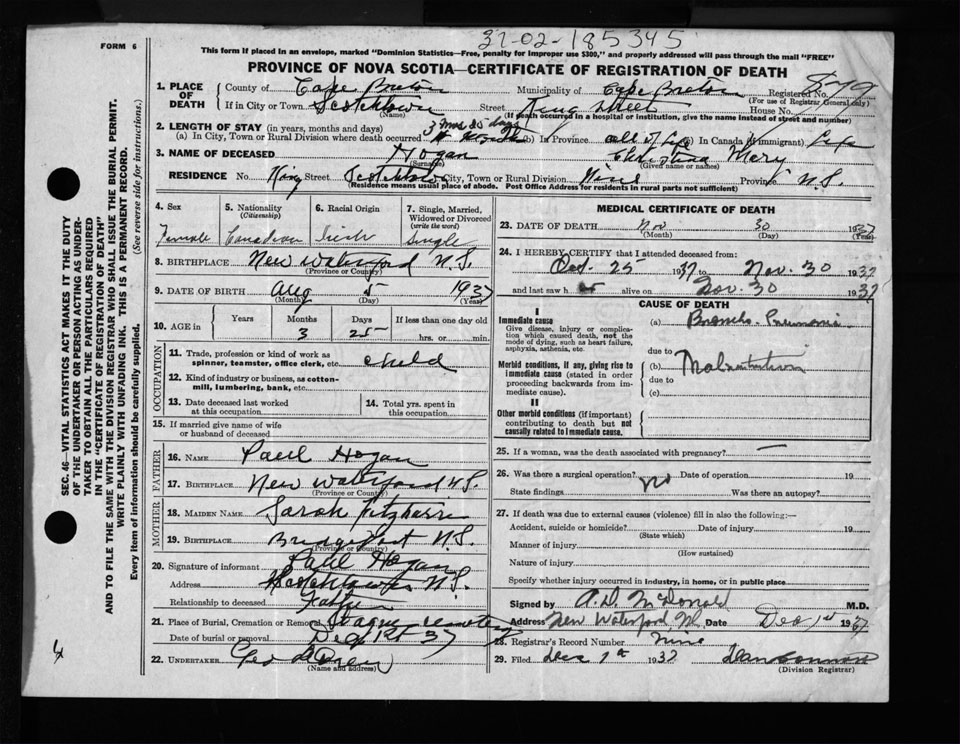 37-02-185345
FORM 6
This form if placed in an envelope, marked "Dominion Statistics—Free, penalty for improper use $300," and properly addressed will pass through the mail "FREE"
PROVINCE OF NOVA SCOTIA—CERTIFICATE OF REGISTRATION OF DEATH
1. PLACE OF DEATH County of Cape Breton Municipality of Cape Breton Registered No.
(For use of Registrar General only)
If in City or Town Scotchtown Street King Street House No.
(Name) (If death occurred in a hospital or institution, give the name instead of street and number)
2. LENGTH OF STAY (in years, months and days)
3 mos 25 days
(a) In City, Town or Rural Division where death occurred (b) In Province all of Life (c) In Canada (if immigrant) Life
3. NAME OF DECEASED Hogan Christina Mary
(Surname) (Given name or names)
RESIDENCE No. King Street Scotchtown City, Town or Rural Division Province N.S.
(Residence means usual place of abode. Post Office Address for residents in rural parts not sufficient)
4. Sex 5. Nationality (Citizenship) 6. Racial Origin 7. Single, Married, Widowed or Divorced (write the word)
Female Canadian Irish Single
8. BIRTHPLACE New Waterford N.S.
(Province or Country)
9. DATE OF BIRTH Aug 5 1937
(Month) (Day) (Year)
10. AGE in Years Months Days If less than one day old
3 25 hrs. or min.
OCCUPATION
11. Trade, profession or kind of work as spinner, teamster, office clerk, etc. child
12. Kind of industry or business, as cotton-mill, lumbering, bank, etc.
13. Date deceased last worked at this occupation 14. Total yrs. spent in this occupation
15. If married give name of wife or husband of deceased
FATHER
16. NAME Paul Hogan
17. BIRTHPLACE New Waterford N.S.
(Province or Country)
MOTHER
18. MAIDEN NAME Sarah Fitzharris
19. BIRTHPLACE Bridgeport N.S.
(Province or Country)
20. Signature of informant Paul Hogan
Address Scotchtown N.S.
Relationship to deceased Father
21. Place of Burial, Cremation or Removal cemetery
Date of burial or removal Dec 1st 37
22. UNDERTAKER
(Name and address)
MEDICAL CERTIFICATE OF DEATH
23. DATE OF DEATH Nov 30 1937
(Month) (Day) (Year)
24. I HEREBY CERTIFY that I attended deceased from:
Oct. 25 1937 to Nov. 30 1937
and last saw h er alive on Nov. 30 1937
CAUSE OF DEATH
I
Immediate cause (a) Broncho Pneumonia
Give disease, injury or complication which caused death, not the mode of dying, such as heart failure, asphyxia, asthenia, etc.
due to
Morbid conditions, if any, giving rise to immediate cause (stated in order proceeding backwards from immediate cause). (b) Malnutrition
due to
(c)
II
Other morbid conditions (if important) contributing to death but not causally related to immediate cause.
25. If a woman, was the death associated with pregnancy? —
26. Was there a surgical operation? No Date of operation 19
State findings Was there an autopsy?
27. If death was due to external causes (violence) fill in also the following:—
Accident, suicide or homicide? Date of injury 19
(State which)
Manner of injury
(How sustained)
Nature of injury
Specify whether injury occurred in industry, in home, or in public place
Signed by A.D. McDonald M.D.
Address New Waterford Date Dec 1st 1937
28. Registrar's Record Number Nine
29. Filed Dec 1937
(Division Registrar)
SEC. 46—VITAL STATISTICS ACT MAKES IT THE DUTY
OF THE UNDERTAKER OR PERSON ACTING AS UNDERTAKER
TO OBTAIN ALL THE PARTICULARS REQUIRED
IN THE "CERTIFICATE OF REGISTRATION OF DEATH"
AND TO FILE THE SAME WITH THE DIVISION REGISTRAR WHO SHALL ISSUE THE BURIAL PERMIT.
WRITE PLAINLY WITH UNFADING INK. THIS IS A PERMANENT RECORD.
Every item of information should be carefully supplied. (See reverse side for instructions.)